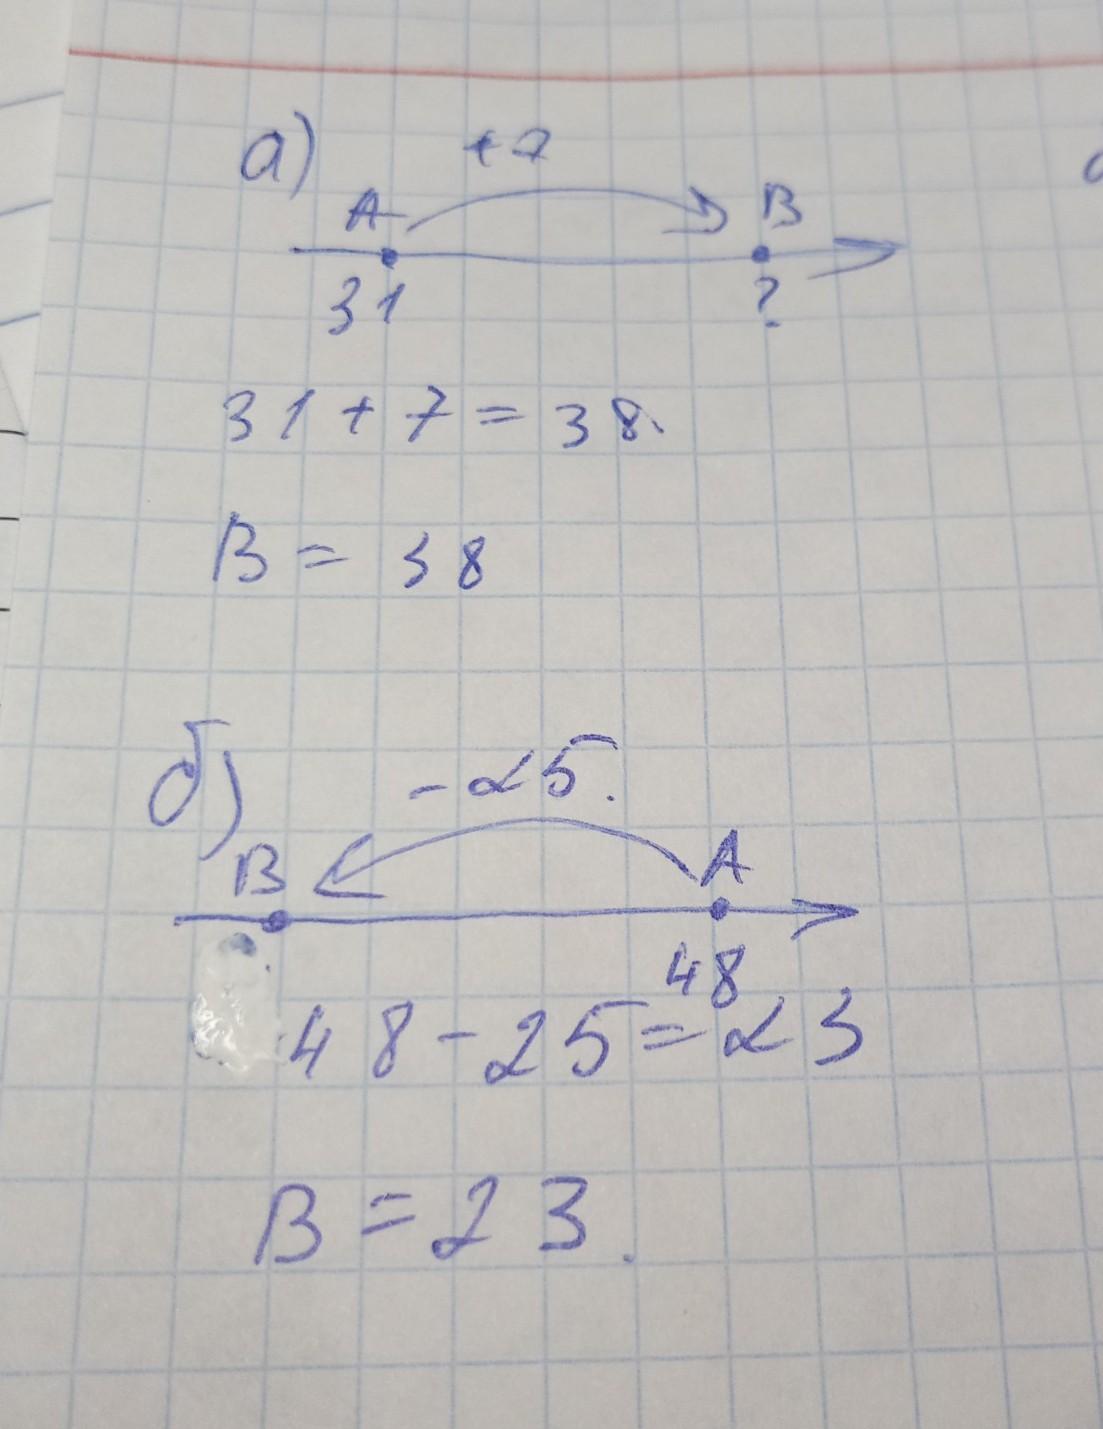 а)
+7
A B
31 ?
31 + 7 = 38.
B = 38
б)
- 25.
B A
48
48 - 25 = 23
B = 23.